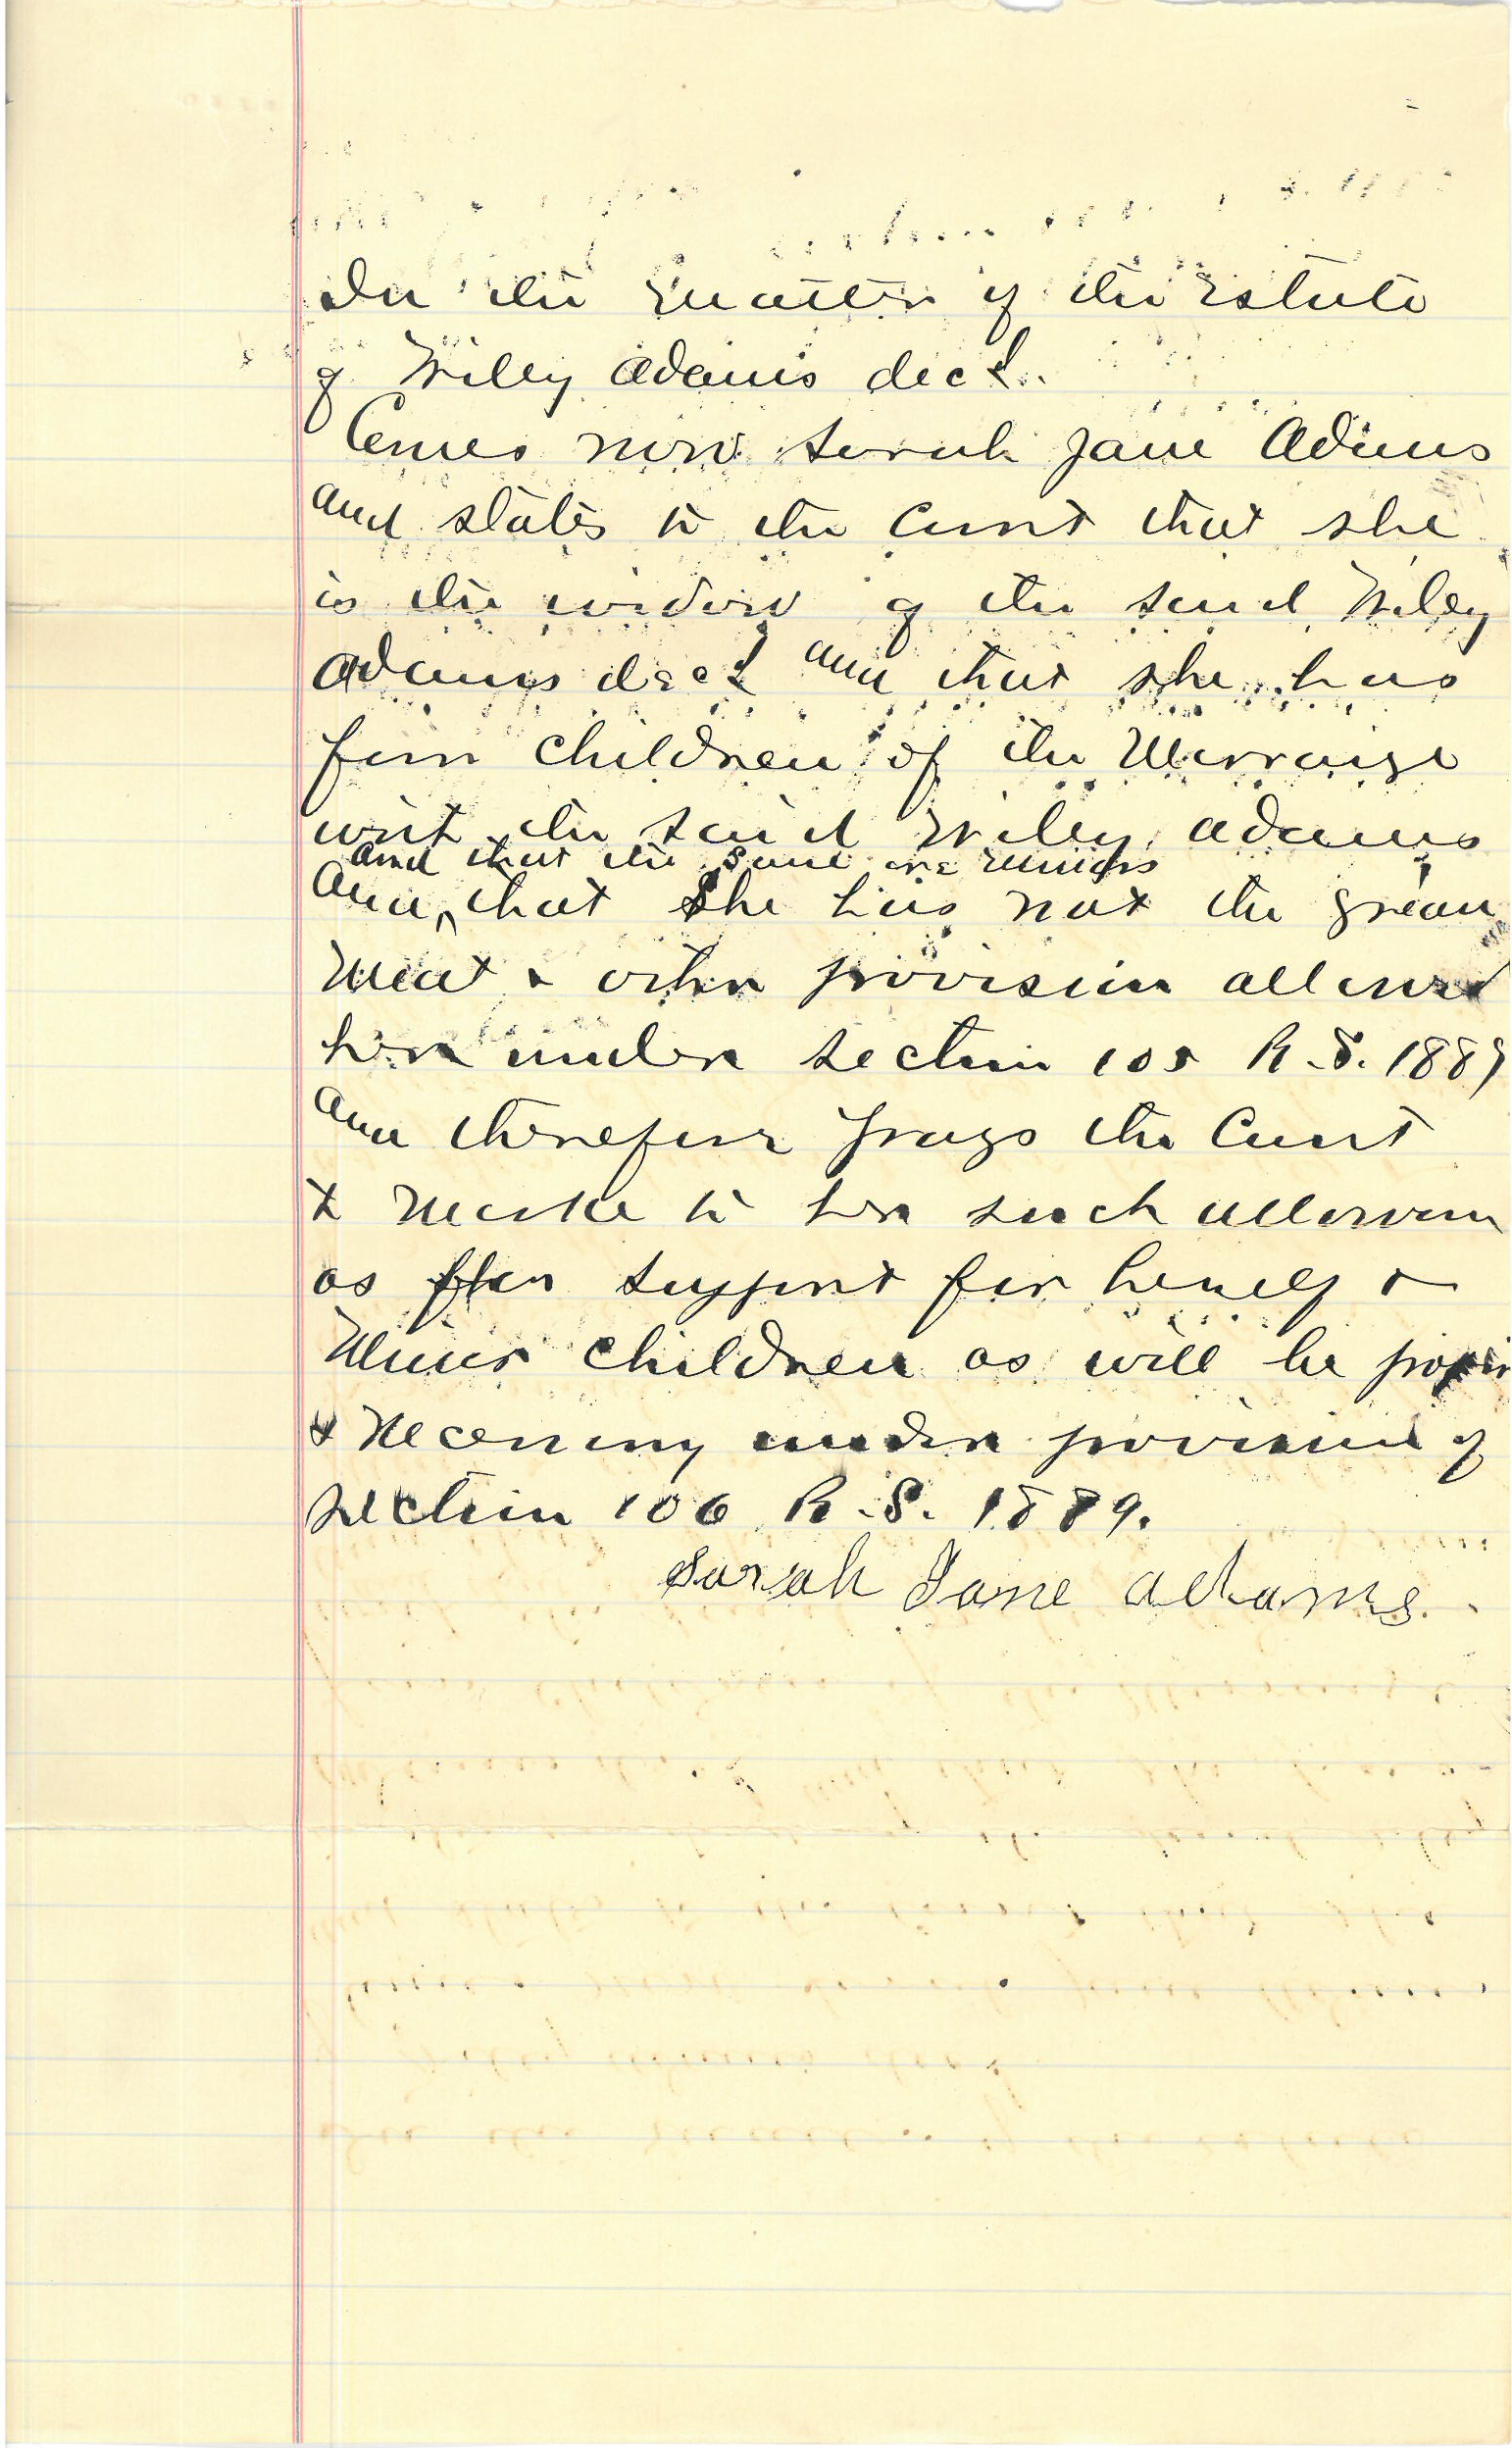 In the matter of the Estate
of Wiley Adams decd.
Comes now Sarah Jane Adams
and states to the Court that she
is the widow of the said Wiley
Adams decd and that she has
four children of the Marraige
with the said Wiley Adams
and that the same are minors
and that she has not the grain
meat & other provision allowed
her under section 105 R.S. 1889
and therefore prays the Court
to make to her such allowanc
as for support for herself &
minor children as will be proper
& necessary under provisions of
section 106 R.S. 1889.
Sarah Jane Adams